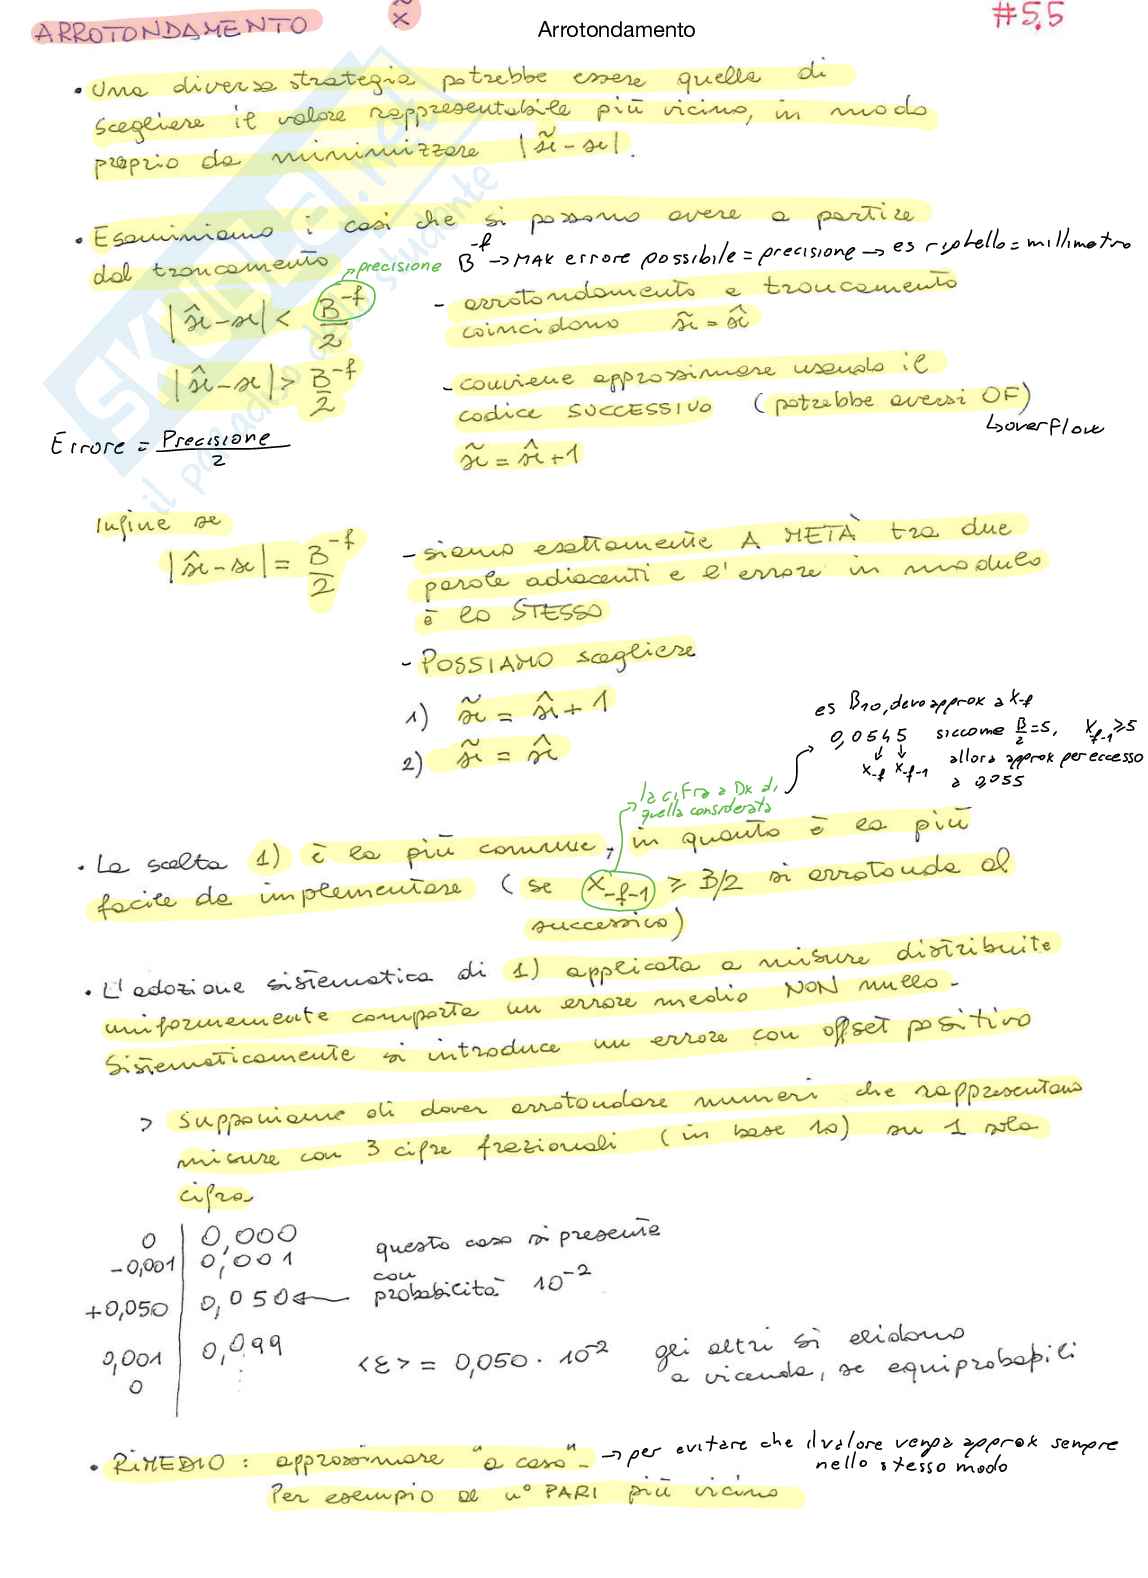 ARROTONDAMENTO x̃ Arrotondamento #5.5
• Una diversa strategia potrebbe essere quella di
scegliere il valore rappresentabile più vicino, in modo
proprio da minimizzare |x̃-x|.
• Esaminiamo i casi che si possono avere a partire
dal troncamento → precisione B^-f → MAX errore possibile = precisione → es righello = millimetro
|x̂-x| < B^-f/2 - arrotondamento e troncamento
coincidono x̃ = x̂
|x̂-x| > B^-f/2 - conviene approssimare usando il
codice SUCCESSIVO (potrebbe aversi OF)
↳ overflow
Errore = Precisione/2
x̃ = x̂+1
Infine se
|x̂-x| = B^-f/2 - siamo esattamente A METÀ tra due
parole adiacenti e l'errore in modulo
è lo STESSO
- POSSIAMO scegliere
1) x̃ = x̂+1
2) x̃ = x̂
es B10, devo approx a x-f
0,0545 siccome B/2=5, x_f-1 ≥5
x-f x-f-1 allora approx per eccesso
a 0,055
la cifra a Dx di
quella considerata
• La scelta 1) è la più comune, in quanto è la più
facile da implementare (se x-f-1 ≥ B/2 si arrotonda al
successivo)
• L'adozione sistematica di 1) applicata a misure distribuite
uniformemente comporta un errore medio NON nullo.
Sistematicamente si introduce un errore con offset positivo
> supponiamo di dover arrotondare numeri che rappresentano
misure con 3 cifre frazionali (in base 10) su 1 sola
cifra
0 | 0,000 questo caso si presenta
-0,001 | 0,001 con
+0,050 | 0,050 ← probabilità 10^-2
0,001 | 0,099 <ε> = 0,050 · 10^-2 gli altri si elidono
0 | ⋮ a vicenda, se equiprobabili
• RIMEDIO: approssimare "a caso" → per evitare che il valore venga approx sempre
nello stesso modo
Per esempio al n° PARI più vicino
SKUOLA.net
il paradiso dello studente